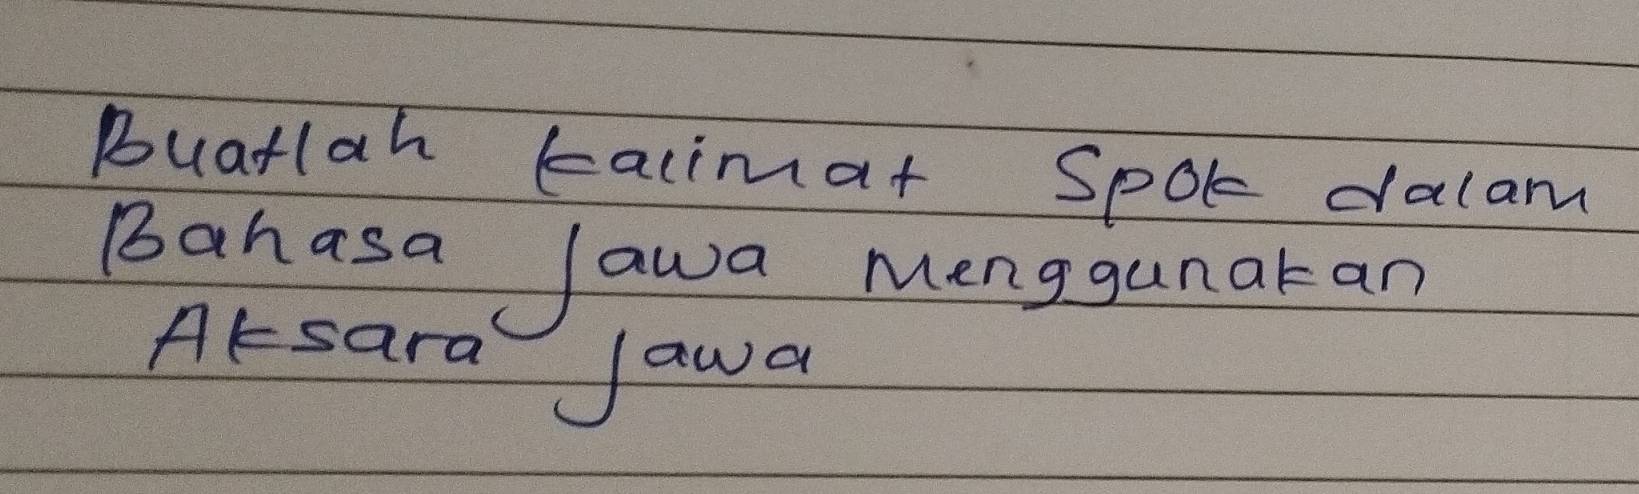 Buatlah kalimat Spok dalam
Bahasa Jawa Menggunakan
Aksara Jawa